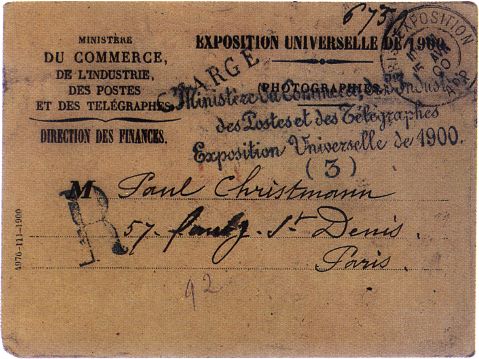 675
MINISTÈRE
DU COMMERCE,
DE L'INDUSTRIE,
DES POSTES
ET DES TÉLÉGRAPHES
DIRECTION DES FINANCES.
EXPOSITION UNIVERSELLE DE 1900.
CHARGÉ
(PHOTOGRAPHIES)
EXPOSITION
Ministère du Commerce de l'Industrie
des Postes et des Télégraphes
Exposition Universelle de 1900.
(3)
R
M Paul Christmann
57. faubg. St Denis.
Paris.
4976-111-1900
92